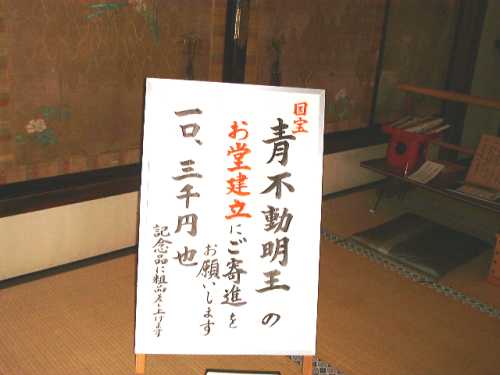 国宝
青不動明王の
お堂建立にご寄進を
お願いします
一口、三千円也
記念品に粗品差し上げます